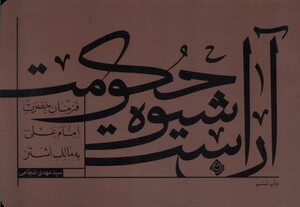 آراسته
شیوه
حکومت
فرمان حضرت
امام علی
به مالک اشتر
سید مهدی شجاعی
چاپ ششم